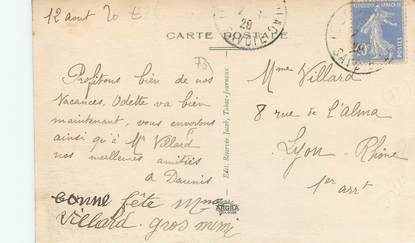 12 août
CARTE POSTALE
(73)
Profitons bien de nos
vacances. Odette va bien
maintenant, vous envoyons
ainsi qu'à Mr Villard
nos meilleures amitiés
à
bonne fête Mme
Villard. gros mimi
Mme Villard
8 rue de l'Alma
Lyon - Rhône
1er arrt
Edit. Tabac-Journaux
POSTES